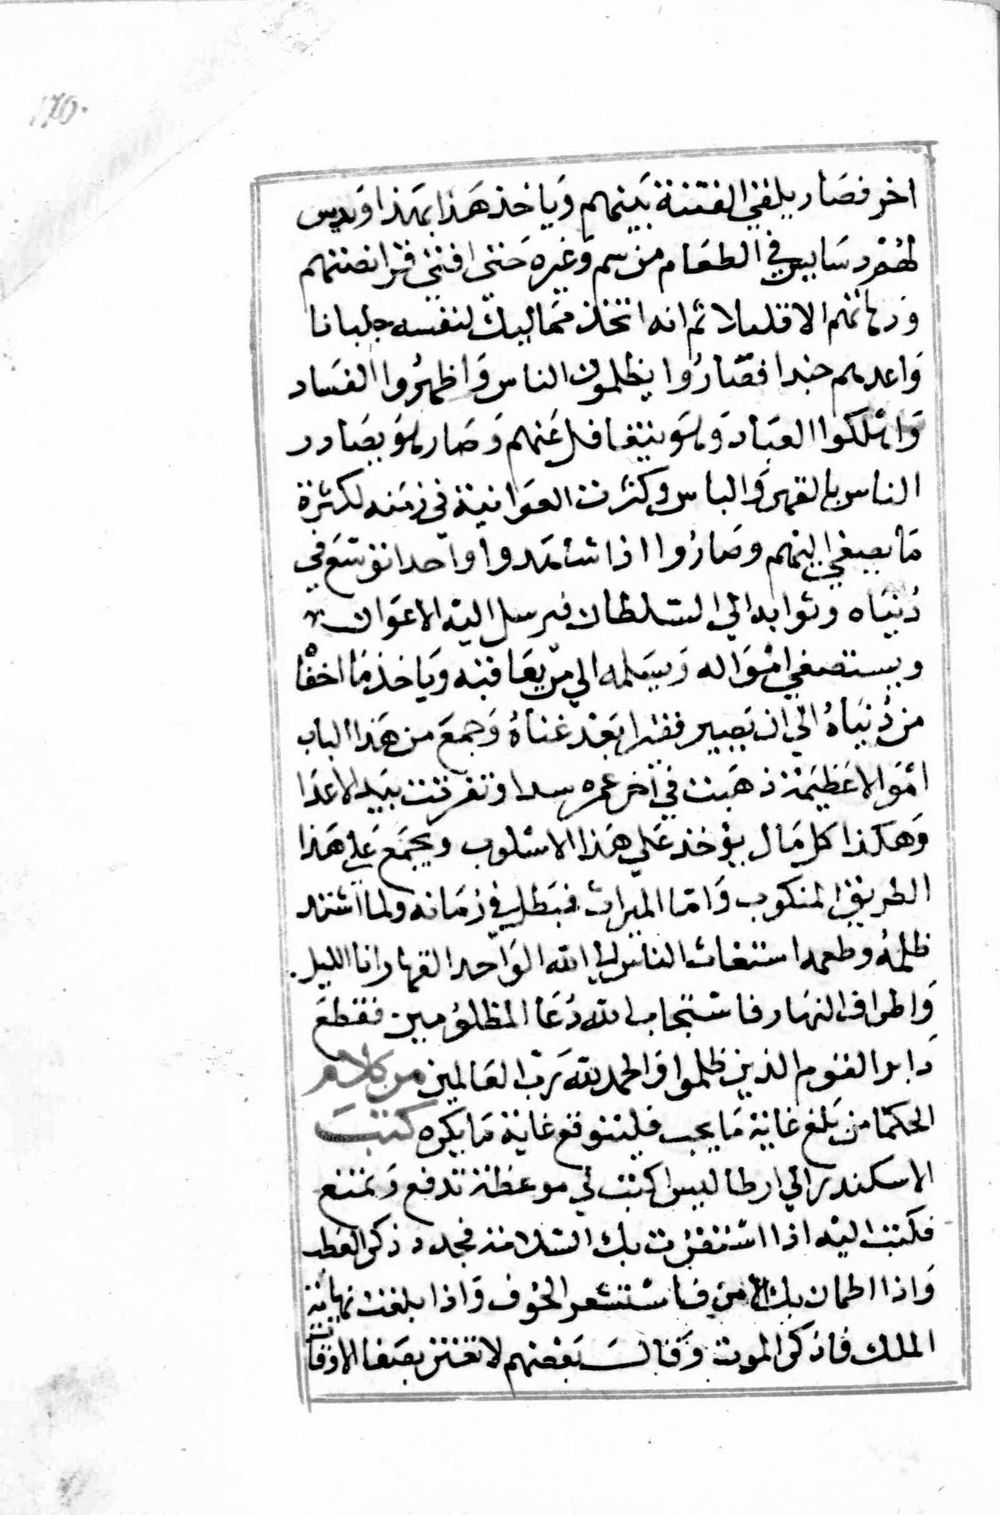 اخر فصار يلقي الفتنة بينهم وياخذ هذا بهذا ويدس
لهم دسايس في الطعام من سم وغيره حتى افنى قرانصتهم
ودهاتهم الا قليلا ثم انه اتخذ مماليك لنفسه جلبانا
واعدهم جندا فصاروا يظلمون الناس واظهروا الفساد
واهلكوا العباد وهو يتغافل عنهم وصار هو يصادر
الناس بالقهر والباس وكثرت العوانية في زمنه لكثرة
ما يصغي اليهم وصاروا اذا شاهدوا واحدا توسع في
دنياه وشوا به الي السلطان فيرسل اليه الاعوان
ويستصفي امواله ويسلمه الي من يعاقبه وياخذ ما اخفا
من دنياه الي ان يصير فقيرا بعد غناه وجمع من هذا الباب
اموالا عظيمة ذهبت في آخر عمره سدا وتفرقت بيد الاعدا
وهكذا كل مال يؤخذ على هذا الاسلوب ويجمع على هذا
الطريق المنكوب واما الميراث فبطل في زمانه ولما اشتد
ظلمه وطعمه استغاث الناس الى الله الواحد القهار انا الليل
واطراف النهار فاستجاب الله دعا المظلومين فقطع
دابر القوم الذين ظلموا والحمد لله رب العالمين من كلام
الحكما من بلغ غاية ما يحب فليتوقع غاية ما يكره كتب
الاسكندر الي ارطاليس اكتب لي موعظة تدفع وتمنع
فكتب اليه اذا استقرت بك السلامة فجدد ذكر العطب
واذا اطمان بك الامن فاستشعر الخوف واذا بلغت نهاية
الملك فاذكر الموت وقال بعضهم لا تغتر بصفا الاوقات